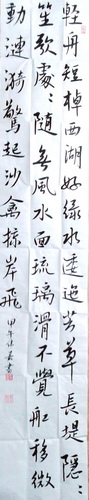 輕舟短棹西湖好綠水逶迤芳草長堤隱〻
笙歌處〻隨無風水面琉璃滑不覺船移微
動漣漪驚起沙禽掠岸飛
甲午
書